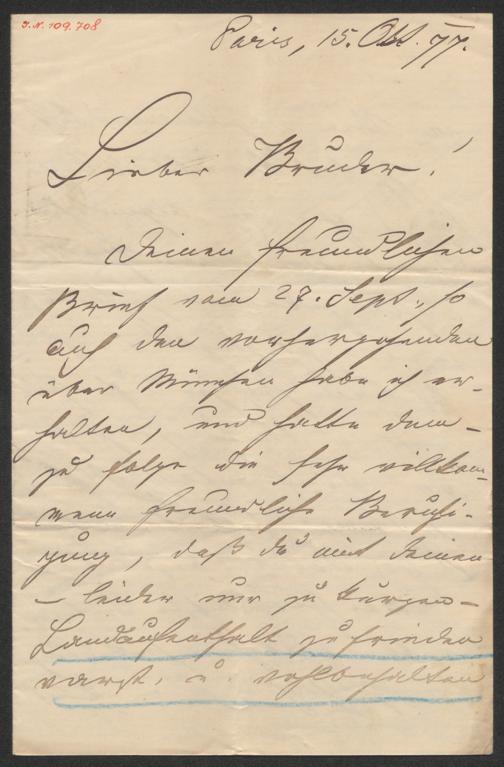 J.N. 109.708
Paris, 15. Okt. 77.
Lieber Bruder!
Deinen freundlichen
Brief vom 27. Sept., so
auch den vorhergehenden
über München habe ich er-
halten, und hatte dem-
zu folge die sehr willkom-
mene freundliche Beruhi-
gung, daß du mit deinen
– leider nur zu kurzen –
Landaufenthalt zufrieden
warst, u. wohlbehalten